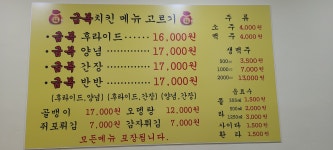 금복치킨 메뉴 고르기
금복 후라이드 16,000원
금복 양념 17,000원
금복 간장 17,000원
금복 반반 17,000원
(후라이드,양념) (후라이드,간장) (양념,간장)
골뱅이 17,000원 오뎅탕 12,000원
쥐포튀김 7,000원 감자튀김 7,000원
모든메뉴 포장됩니다.
주 류
소 주 4,000원
맥 주 4,000원
생맥주
500cc 3,500원
1000cc 7,000원
2000cc 13,000원
음료수
콜 라
사이다
환 타 1,500원